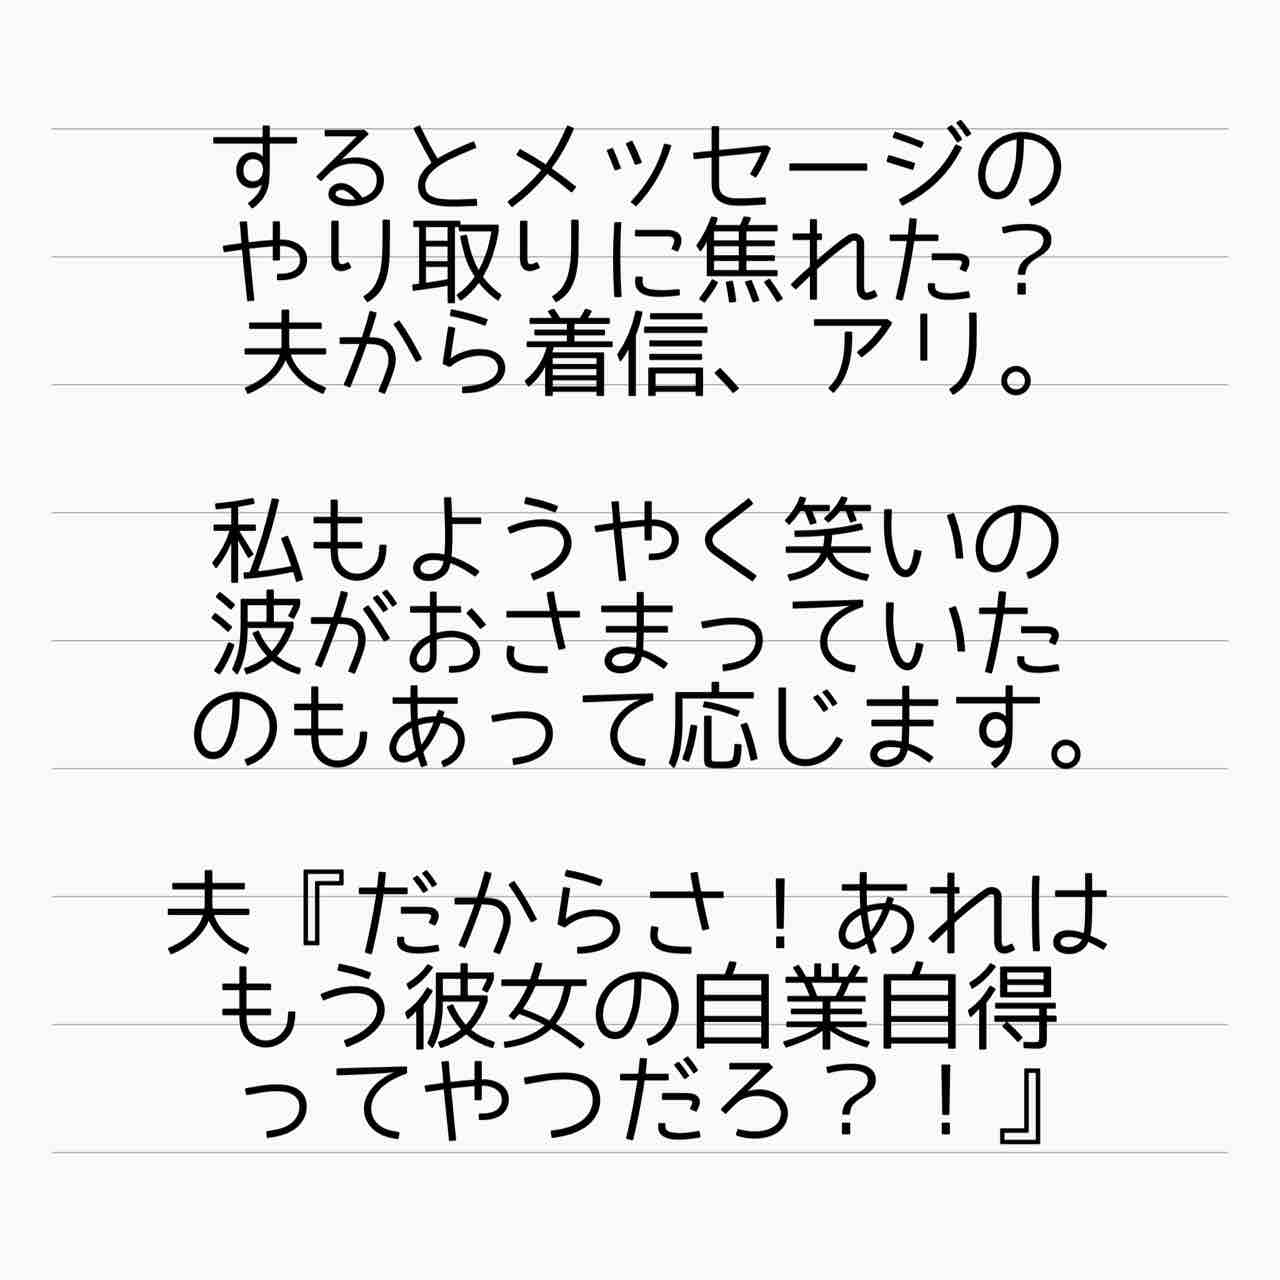 するとメッセージの
やり取りに焦れた？
夫から着信、アリ。
私もようやく笑いの
波がおさまっていた
のもあって応じます。
夫『だからさ！あれは
もう彼女の自業自得
ってやつだろ？！』